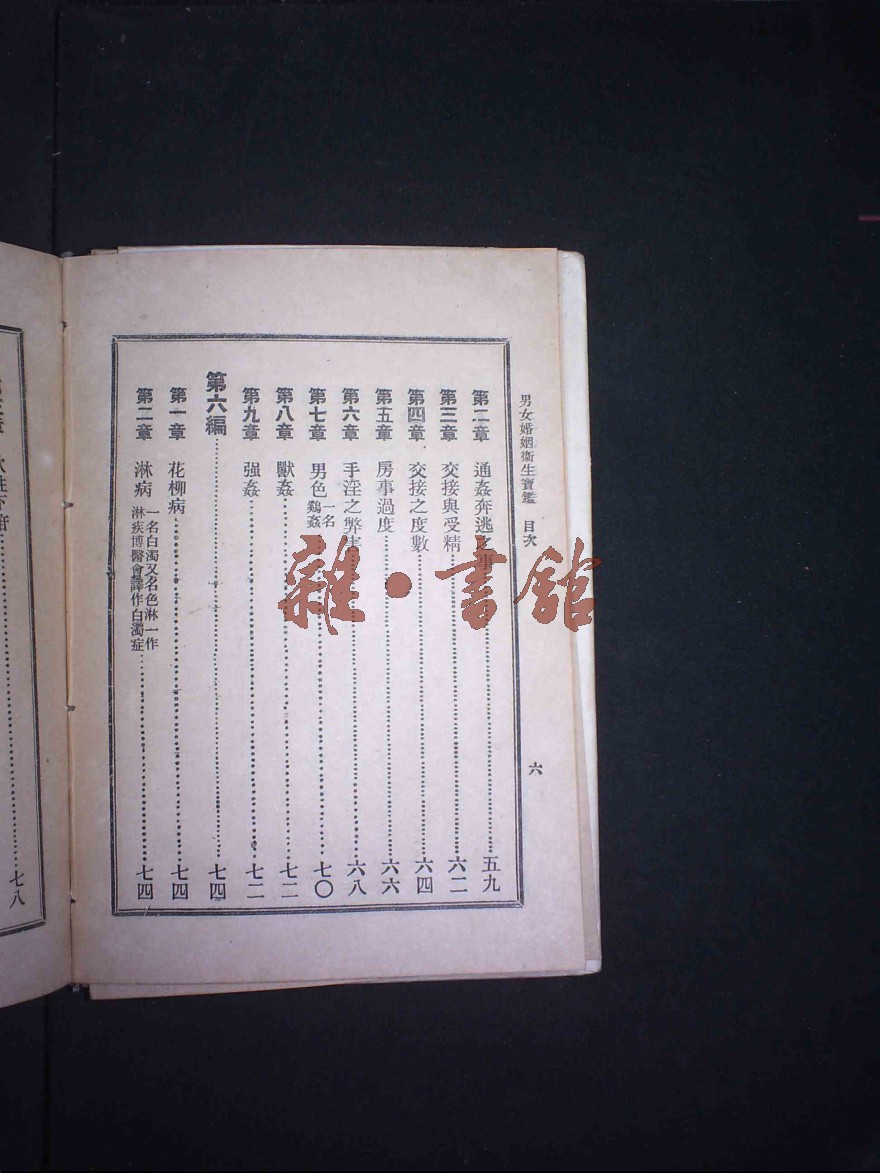 男女婚姻衞生寶鑑 目次 六
第二章 通姦奔逃之 五九
第三章 交接與受精 六二
第四章 交接之度數 六四
第五章 房事過度 六六
第六章 手淫之弊害 六八
第七章 男色 一名鷄姦 七〇
第八章 獸姦 七二
第九章 强姦 七二
第六編 七四
第一章 花柳病 七四
第二章 淋病 一名白濁又名色淋一作淋疾博醫會譯作白濁症 七四
七八
雜·書館